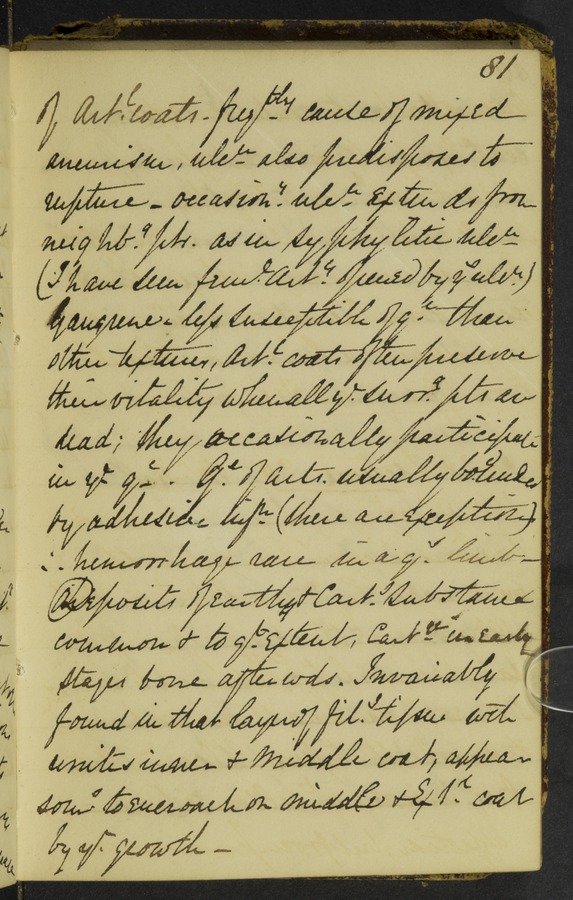 81
of Art.l coats - freq.tly cause of mixed
aneurism, ulc.n also predisposes to
rupture - occasion.y ulc.n extends from
neighb.g pts. as in syphylitic ulc.n
(I have seen fem.l Art.y opened by y.s ulc.n)
Gangrene - less susceptible of g.e than
other textures, Art.l coats often preserve
their vitality when all y.e surr.g pts are
dead; they occasionally participate
in y.e g.e. G.e of arts. usually bounded
by adhesive inf.n (there are exceptions)
∴ hemorrhage rare in a g.s limb -
Deposits of earthy & Cart.s Substance
common & to g.t extent, Cart.s in early
stages bone afterwds. Invariably
found in that layer of fib.s tissue wch
unites inner & middle coat, appear
som.s to encroach on middle & Ext.l coat
by y.r growth -